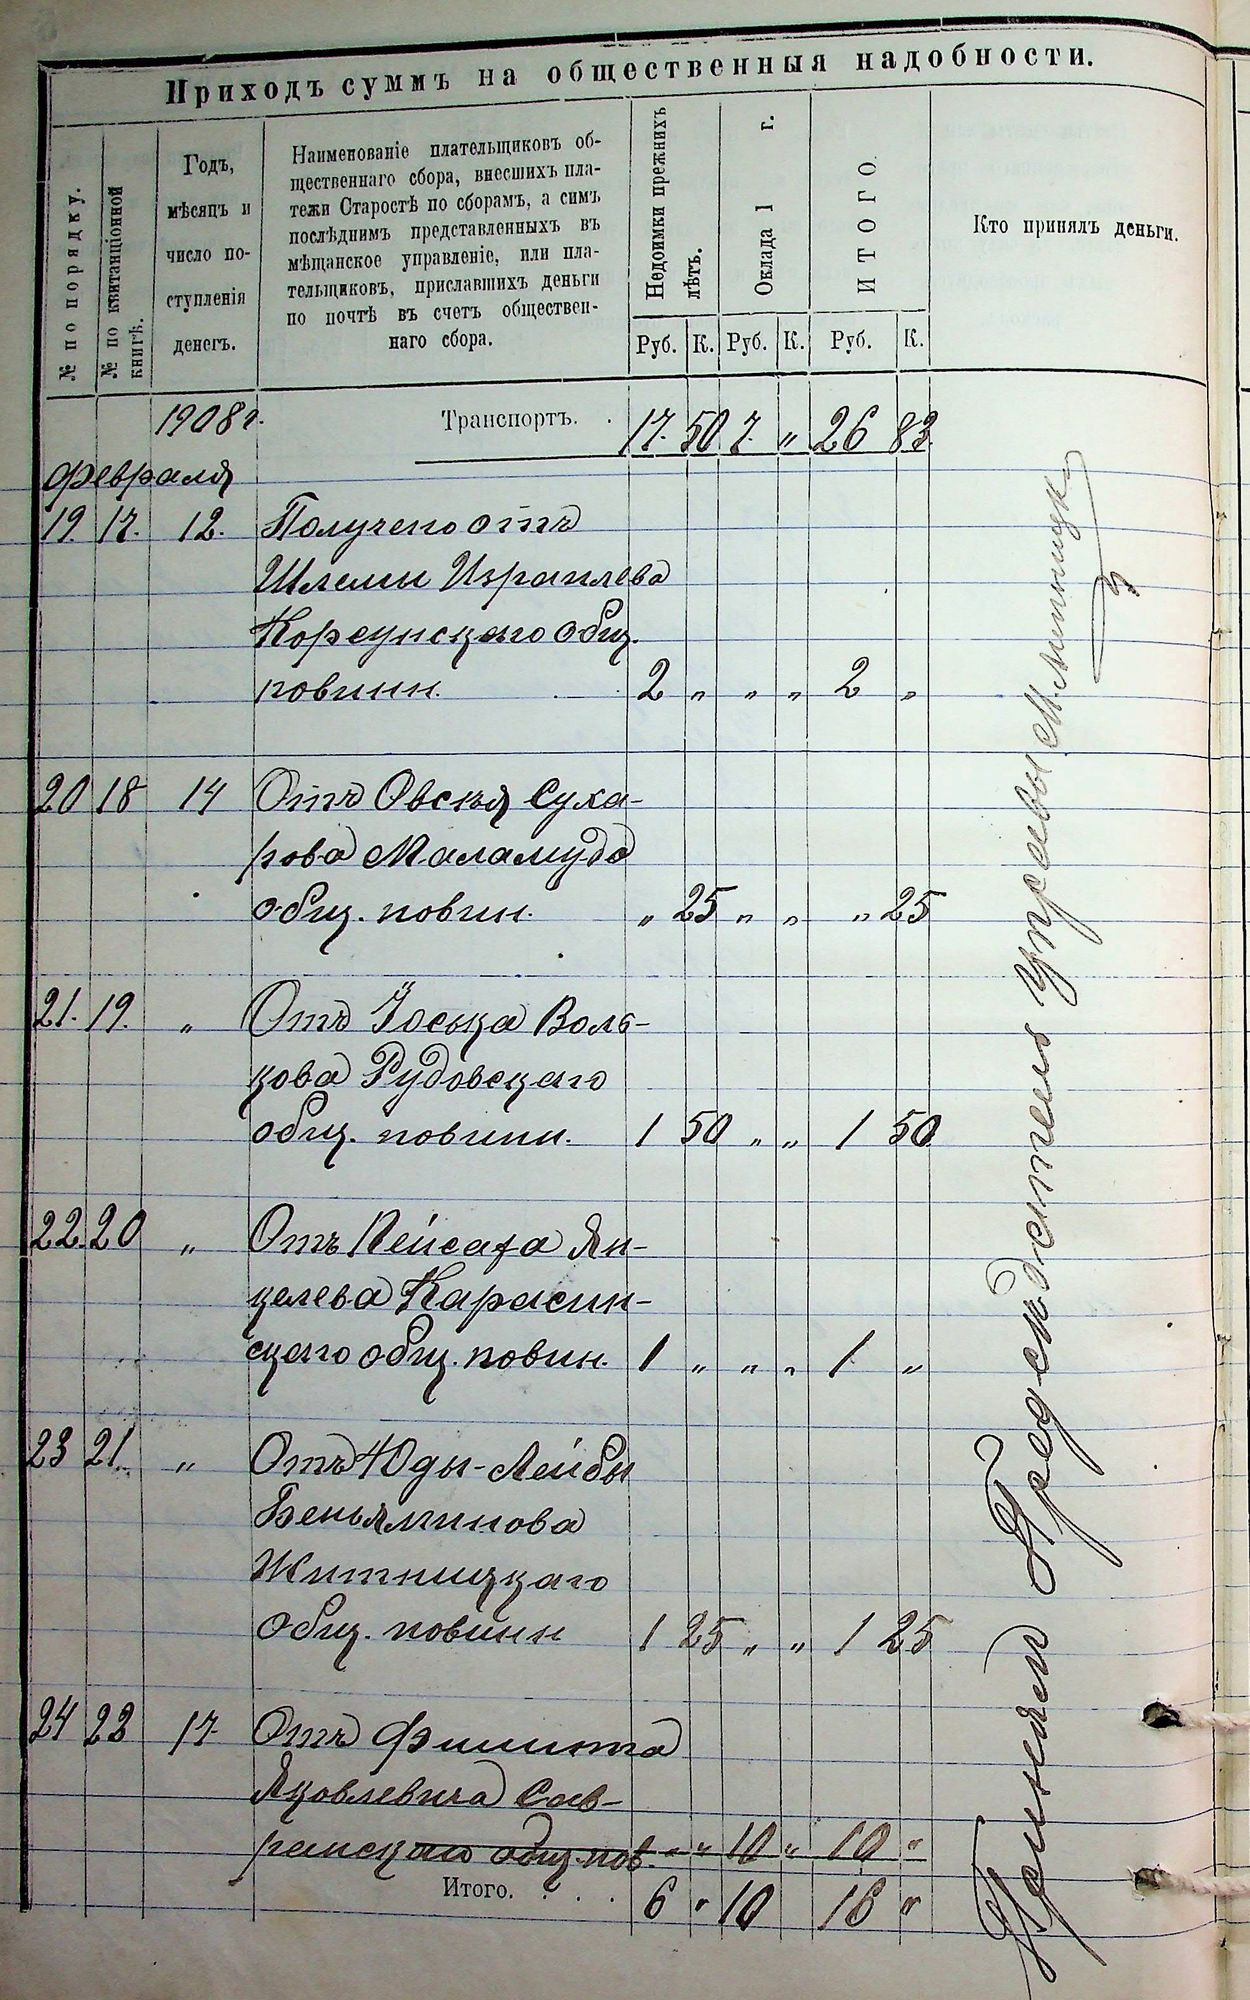 Приходъ суммъ на общественныя надобности.
№ по порядку.
№ по квитанціонной книгѣ.
Годъ,
мѣсяцъ и
число по-
ступленія
денегъ.
Наименованіе плательщиковъ об-
щественнаго сбора, внесшихъ пла-
тежи Старостѣ по сборамъ, а симъ
послѣднимъ представленныхъ въ
мѣщанское управленіе, или пла-
тельщиковъ, приславшихъ деньги
по почтѣ въ счетъ обществен-
наго сбора.
Недоимки прежнихъ лѣтъ.
Оклада 1 г.
ИТОГО.
Кто принялъ деньги.
Руб. К. Руб. К. Руб. К.
1908 г. Транспортъ. . 17. 50 7. „ 26 83
Февраля
19. 17. 12. Получено отъ
Шлемы Израилева
Корсунскаго общ.
повинн. 2 „ „ „ 2 „
20 18 14 Отъ Овсѣя Суха-
рова Маламуда
общ. повин. „ 25 „ „ „ 25
21. 19. „ Отъ Іоська Воль-
кова Рудовскаго
общ. повинн. 1 50 „ „ 1 50
22. 20 „ Отъ Пейсаха Ян-
келева Карасин-
скаго общ. повин. 1 „ „ „ 1 „
23 21 „ Отъ Юды-Лейбы
Беньяминова
Житницкаго
общ. повинн 1 25 „ „ 1 25
24 22 17. Отъ
Яковлевича Сав-
ранскаго общ. пов. „ „ 10 „ 10 „
Итого. . . . 6 „ 10 16 „
Принялъ Предсѣдатель управы